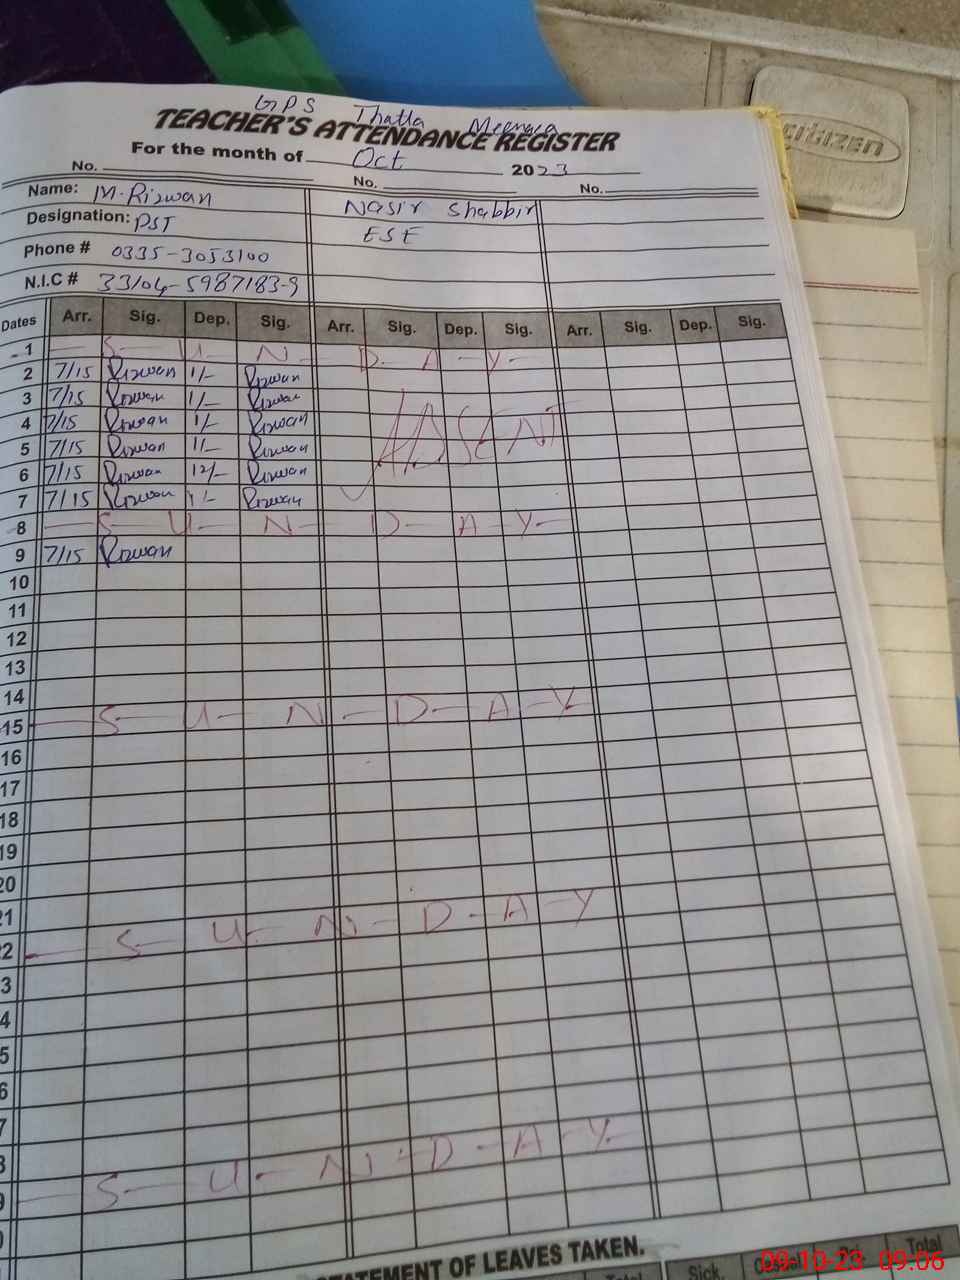 GPS Thatta Meenara
TEACHER'S ATTENDANCE REGISTER
For the month of Oct 2023
No. No. No.
Name: M. Rizwan Nasir Shabbir
Designation: PST ESE
Phone # 0335-3053100
N.I.C # 33104-5987183-9
Dates Arr. Sig. Dep. Sig. Arr. Sig. Dep. Sig. Arr. Sig. Dep. Sig.
1 S U N D A Y
2 7/15 Rizwan 1/- Rizwan
3 7/15 Rizwan 1/- Rizwan
4 7/15 Rizwan 1/- Rizwan ABSENT
5 7/15 Rizwan 1/- Rizwan
6 7/15 Rizwan 12/- Rizwan
7 7/15 Rizwan 1/- Rizwan
8 S U N D A Y
9 7/15 Rizwan
10
11
12
13
14
15 S U N D A Y
16
17
18
19
20
21
22 S U N D A Y
3
4
5
6
7
8
9 S U N D A Y
0
STATEMENT OF LEAVES TAKEN.
Total Sick. Total
09-10-23 09:06
CITIZEN